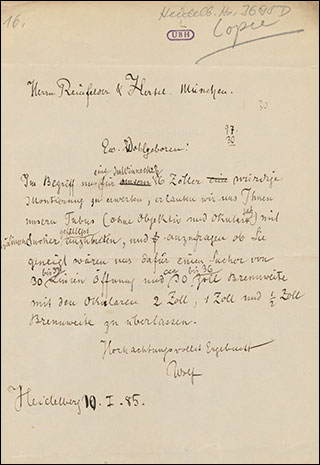 16.
Heidelb. Hs. 3695 D
UBH
Copie
Herrn Reinfelder & Hertel München.
30
97
30
Ew. Wohlgeboren:
eine
Im Begriff uns für unseren 6 Zöller eine würdige
Montierung zu erwerben, erlauben wir uns Ihnen
unsern Tubus (ohne Objektiv und Okulare) mit
Sucher anzubieten, und anzufragen ob Sie
geneigt wären uns dafür einen Sucher von
bis
bis 36
30 Linien Öffnung und 30 Zoll Brennweite
mit den Okularen 2 Zoll, 1 Zoll und ½ Zoll
Brennweite zu überlassen.
Hochachtungsvollst Ergebenst
Wolf
Heidelberg 10. I. 85.